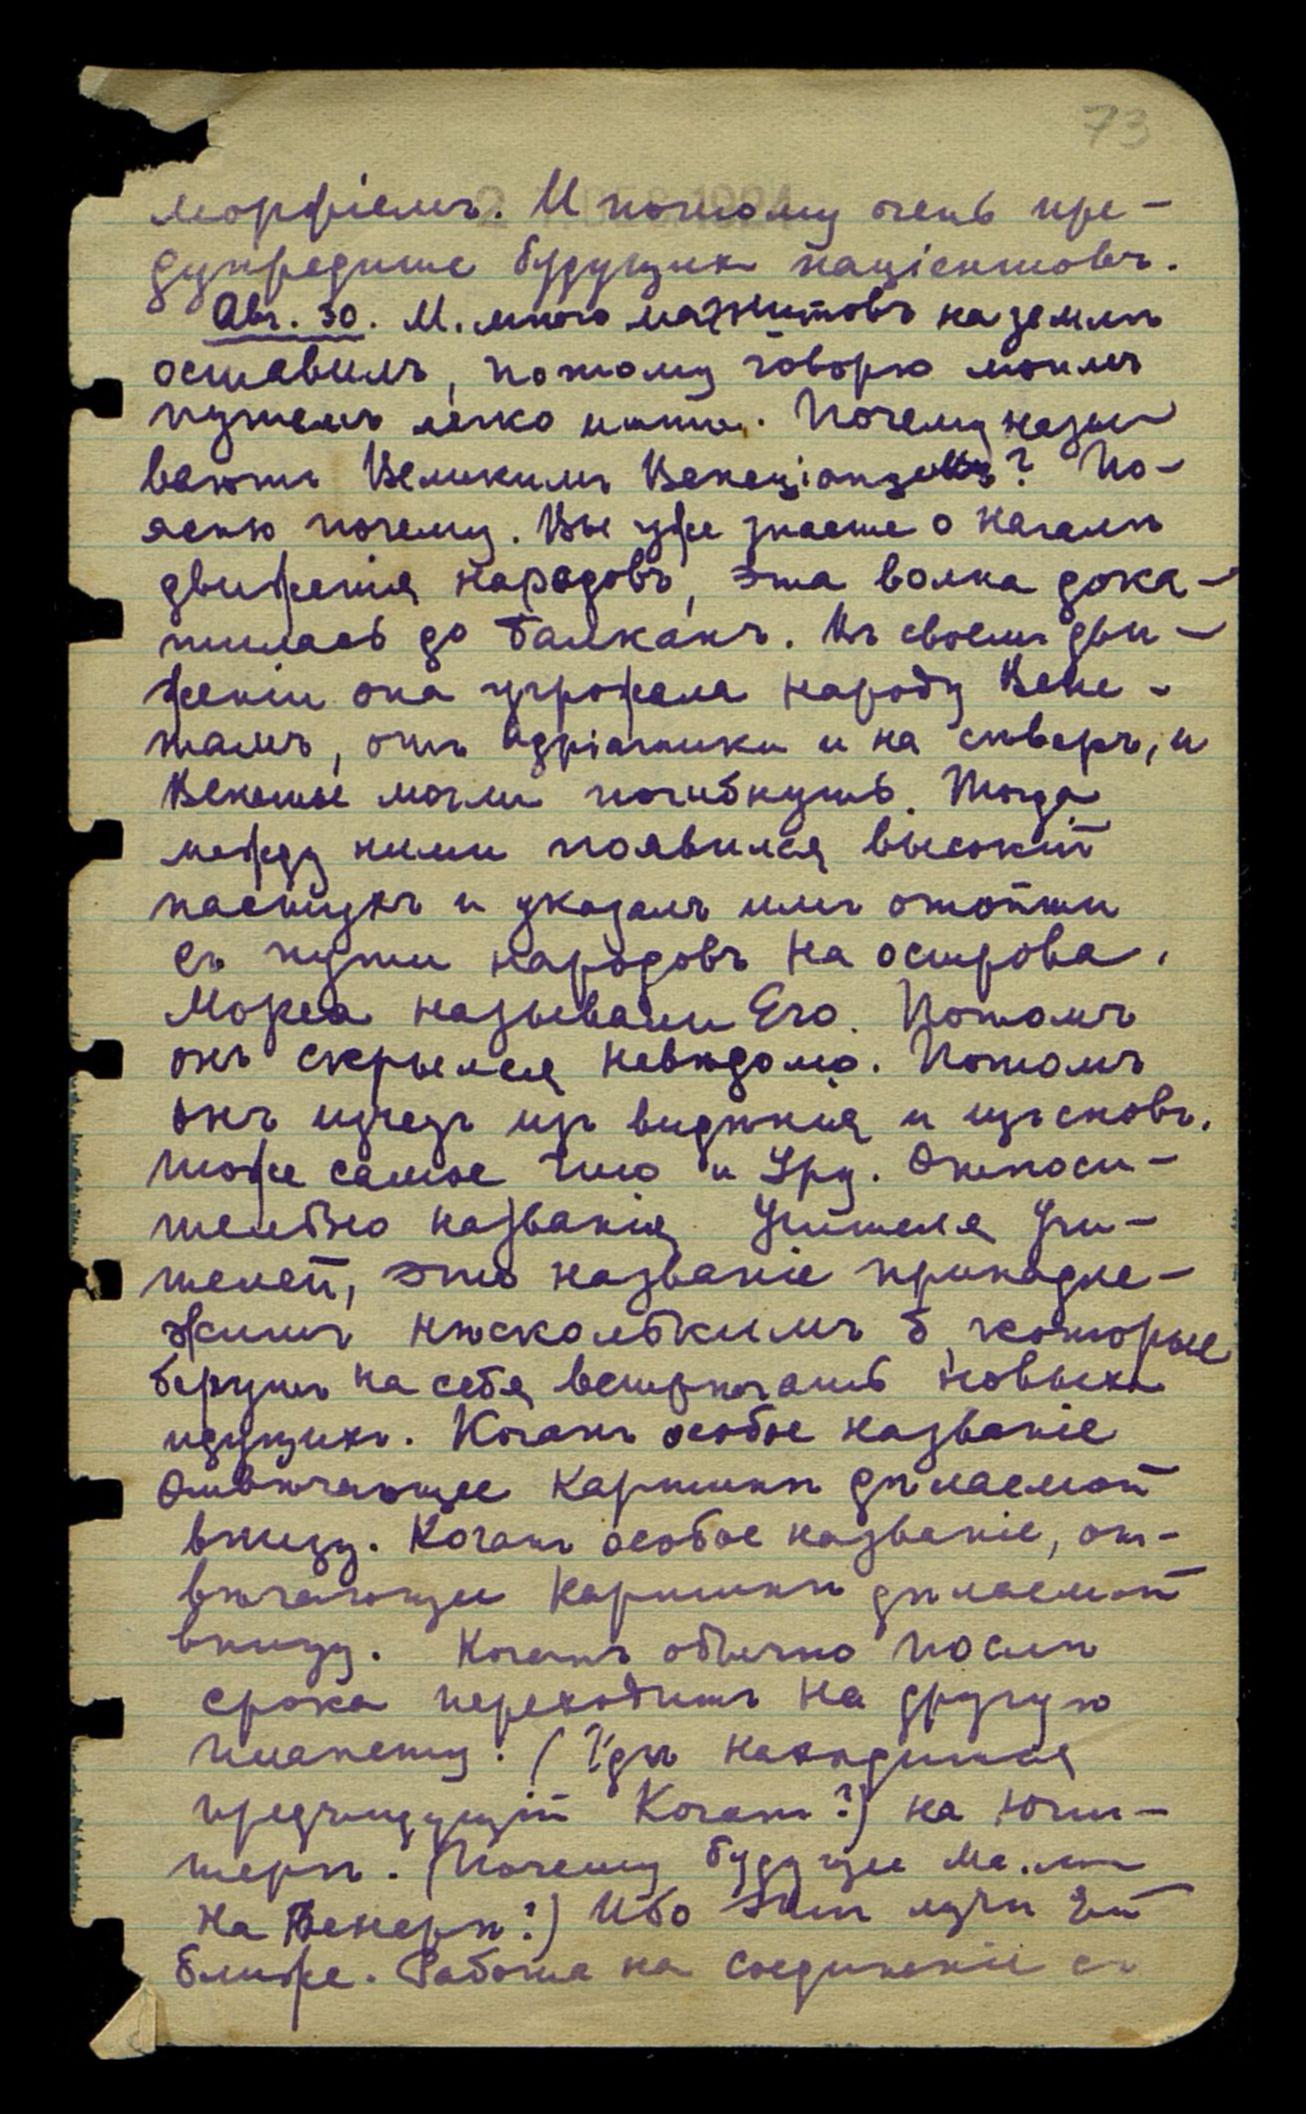 73
морфіемъ. И потому очень пре-
дупредите будущих паціентовъ.
Авг. 30. М. много магнитовъ на землѣ
оставилъ, потому говорю моимъ
путемъ легко итти. Почему назы-
ваютъ Великимъ Венеціанцемъ? По-
ясню почему. Вы уже знаете о началѣ
движенія народовъ, эта волна дока-
тилась до Балканъ. Въ своемъ дви-
женіи она угрожала народу Вене-
тамъ, отъ Адріатики и на сѣверъ, и
Венеты могли погибнуть. Тогда
между ними появился высокій
пастухъ и указалъ имъ отойти
съ пути народовъ на острова.
Мореа называли Его. Потомъ
онъ скрылся невѣдомо. Потомъ
онъ изчезъ изъ видѣнія и изъ сновъ.
Тоже самое что и Уру. Относи-
тельно названія Учителя Учи-
телей, это названіе принадле-
житъ нѣсколькимъ Б, которые
берутъ на себя встрѣчать новыхъ
идущихъ. Коганъ особое названіе
отвѣчающее картинѣ дѣлаемой
внизу. Коганъ особое названіе, от-
вѣчающее картинѣ дѣлаемой
внизу. Коганъ обычно послѣ
срока переходитъ на другую
планету. (Гдѣ находится
предъидущій Коганъ?) на Юпи-
терѣ. (Почему будущее
на Венерѣ?) Ибо эти лучи Ей
ближе. Работа на соединеніе съ